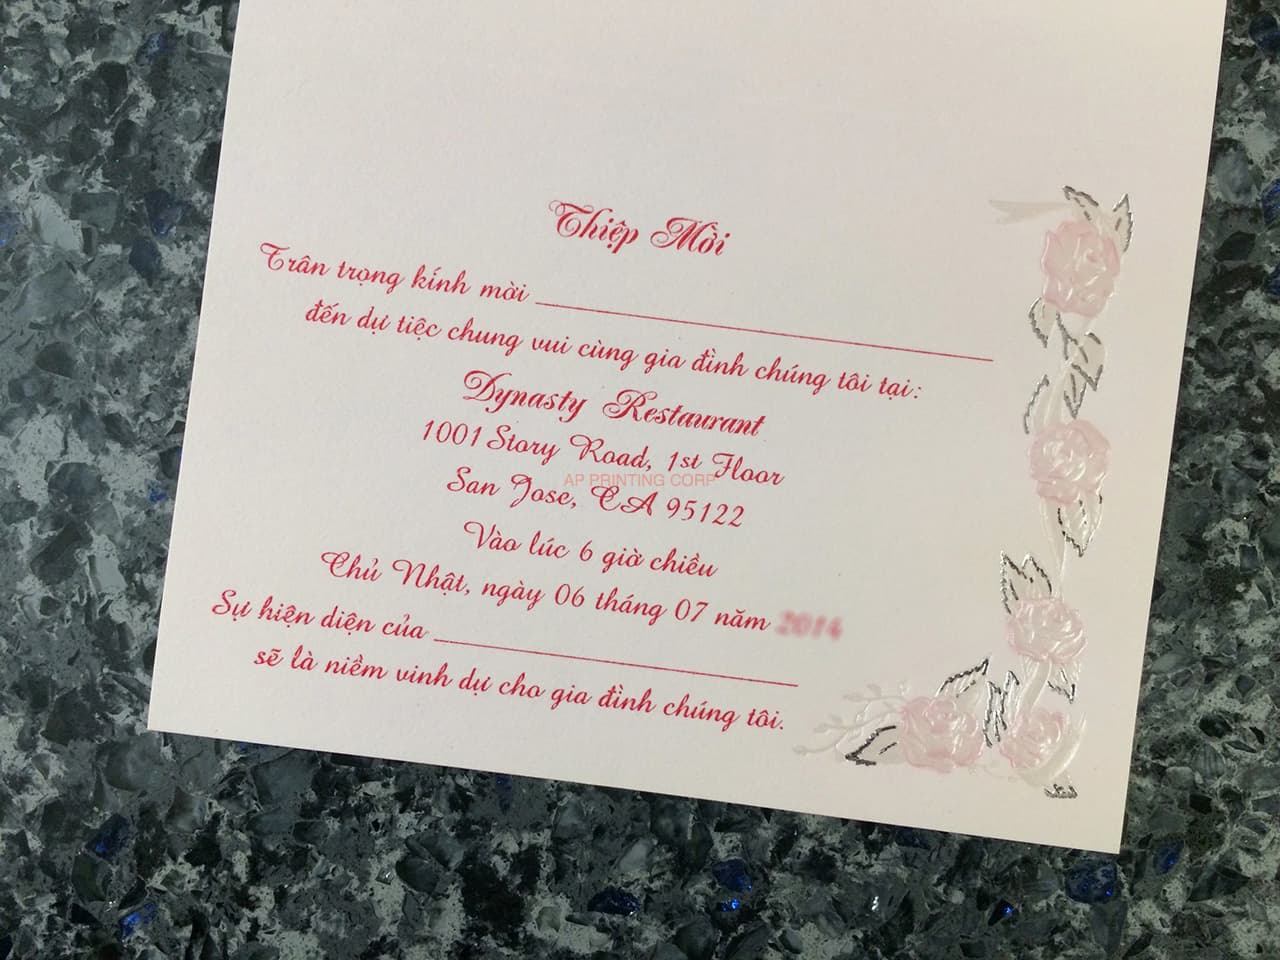 Thiệp Mời
Trân trọng kính mời
đến dự tiệc chung vui cùng gia đình chúng tôi tại:
Dynasty Restaurant
1001 Story Road, 1st Floor
AP PRINTING CORP
San Jose, CA 95122
Vào lúc 6 giờ chiều
Chủ Nhật, ngày 06 tháng 07 năm 2014
Sự hiện diện của
sẽ là niềm vinh dự cho gia đình chúng tôi.